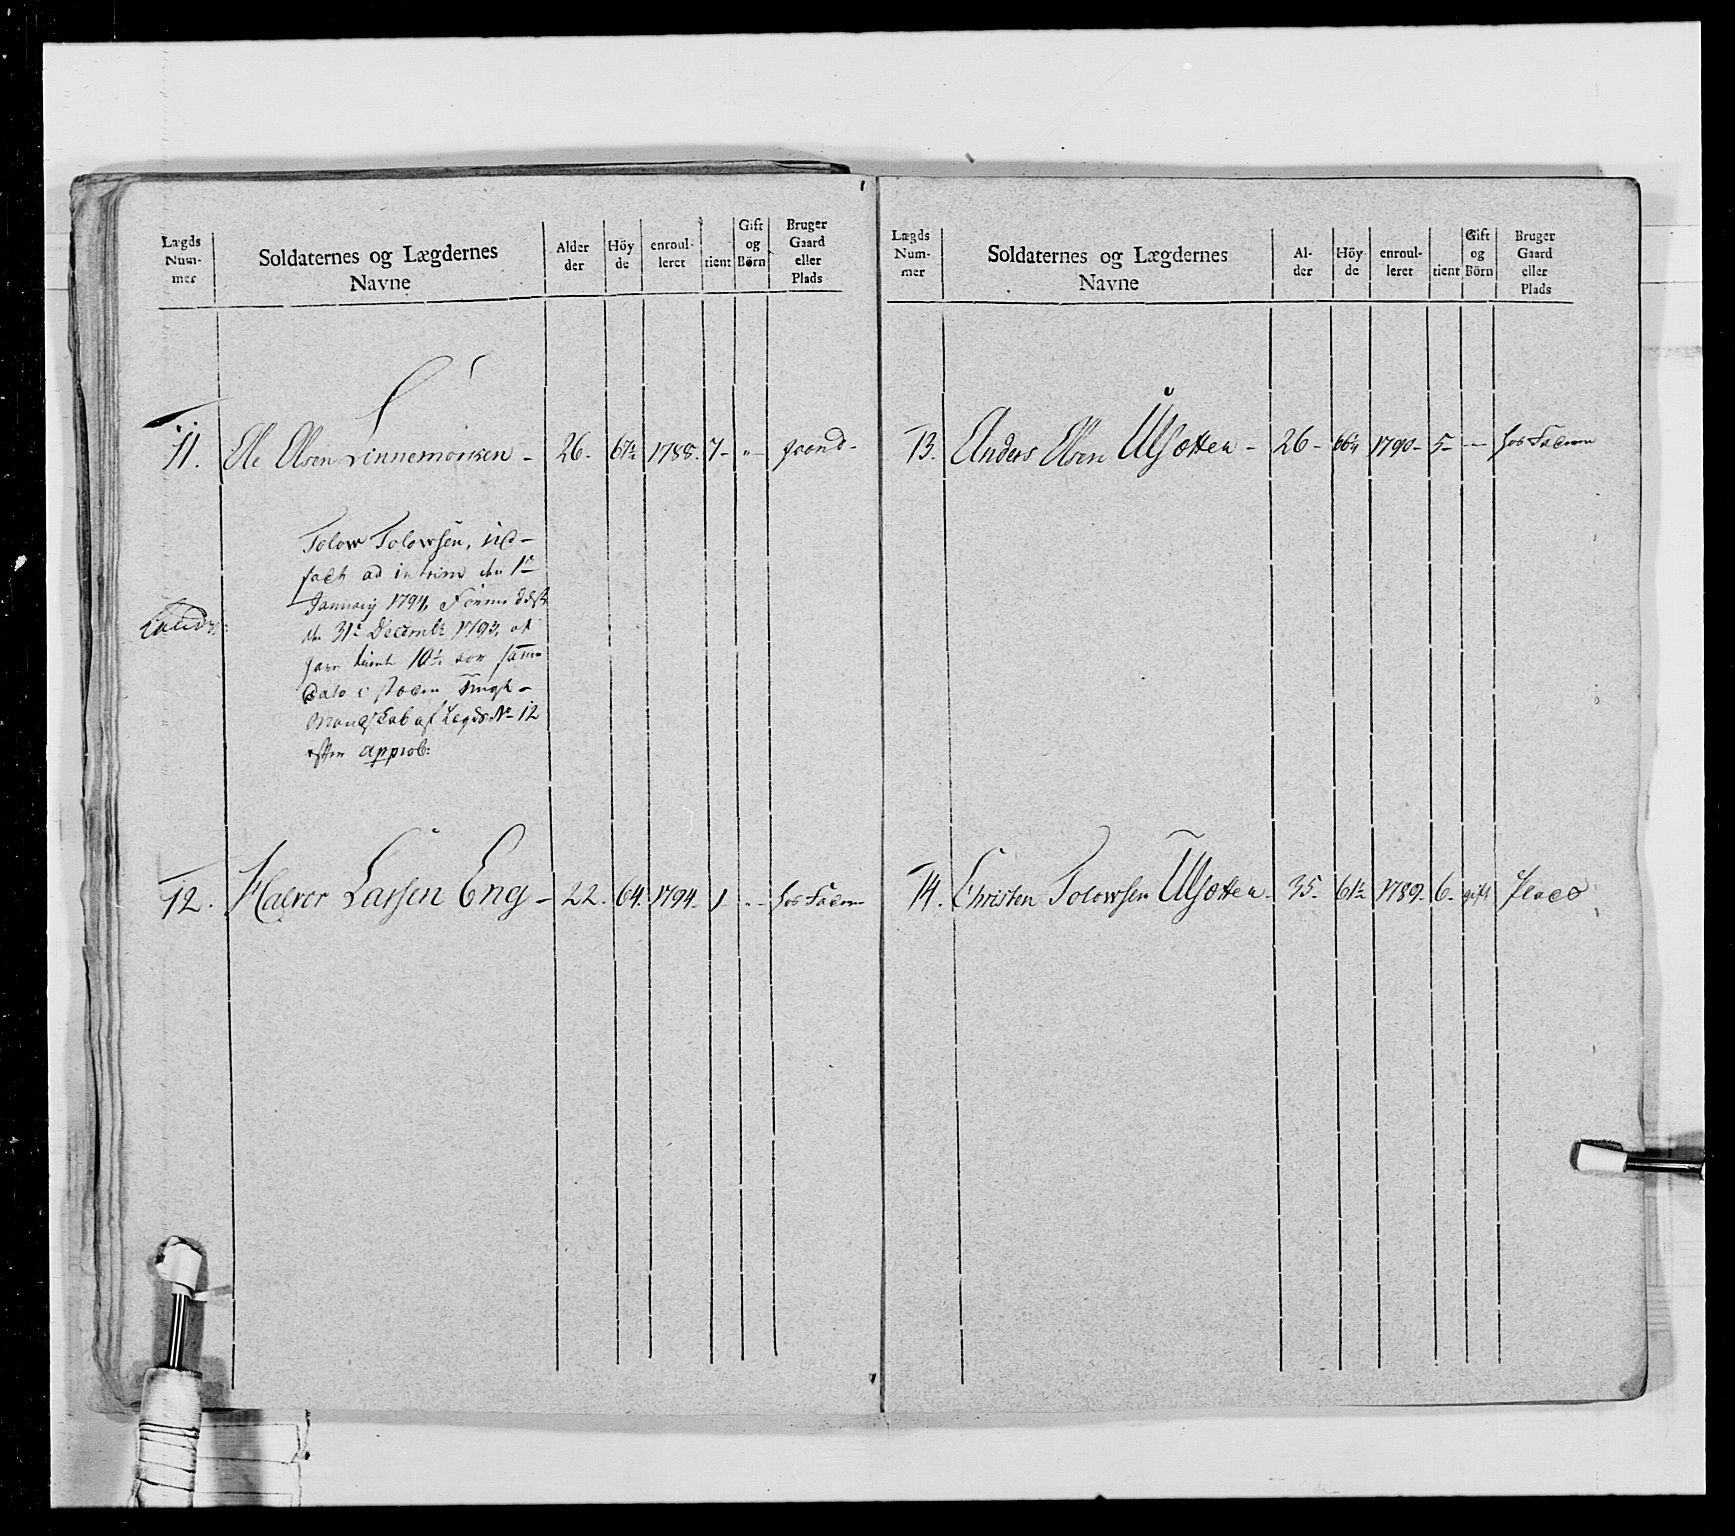 Lægds
Num-
mer
Soldaternes og Lægdernes
Navne
Alder
der
Höy
de
enroul-
leret
tient
Gift
og
Börn
Bruger
Gaard
eller
Plads
11. Ole Olsen Linnemoriken - 26. 67½ 1788. 7 - "-
Tolow Tolowsen, ud-
sadt ad intrim den 1te
January 1794,
den 31te Decembr 1793, at
tient 10½
Dato i
Mandskab af Legds No 12
approb:
12. Halvor Larsen Eng - 22. 64. 1794. 1 - "- hos Faderen
Lægds
Num-
mer
Soldaternes og Lægdernes
Navne
Al-
der
Höy
de
enroul-
leret
tient
Gift
og
Börn
Bruger
Gaard
eller
Plads
13. Anders Olsen Ulsætten - 26 - 66¼ 1790 - 5 - "- hos Faderen
14. Christen Tolowsen Ulsætten - 35. 61½ 1789. 6. gift Plads